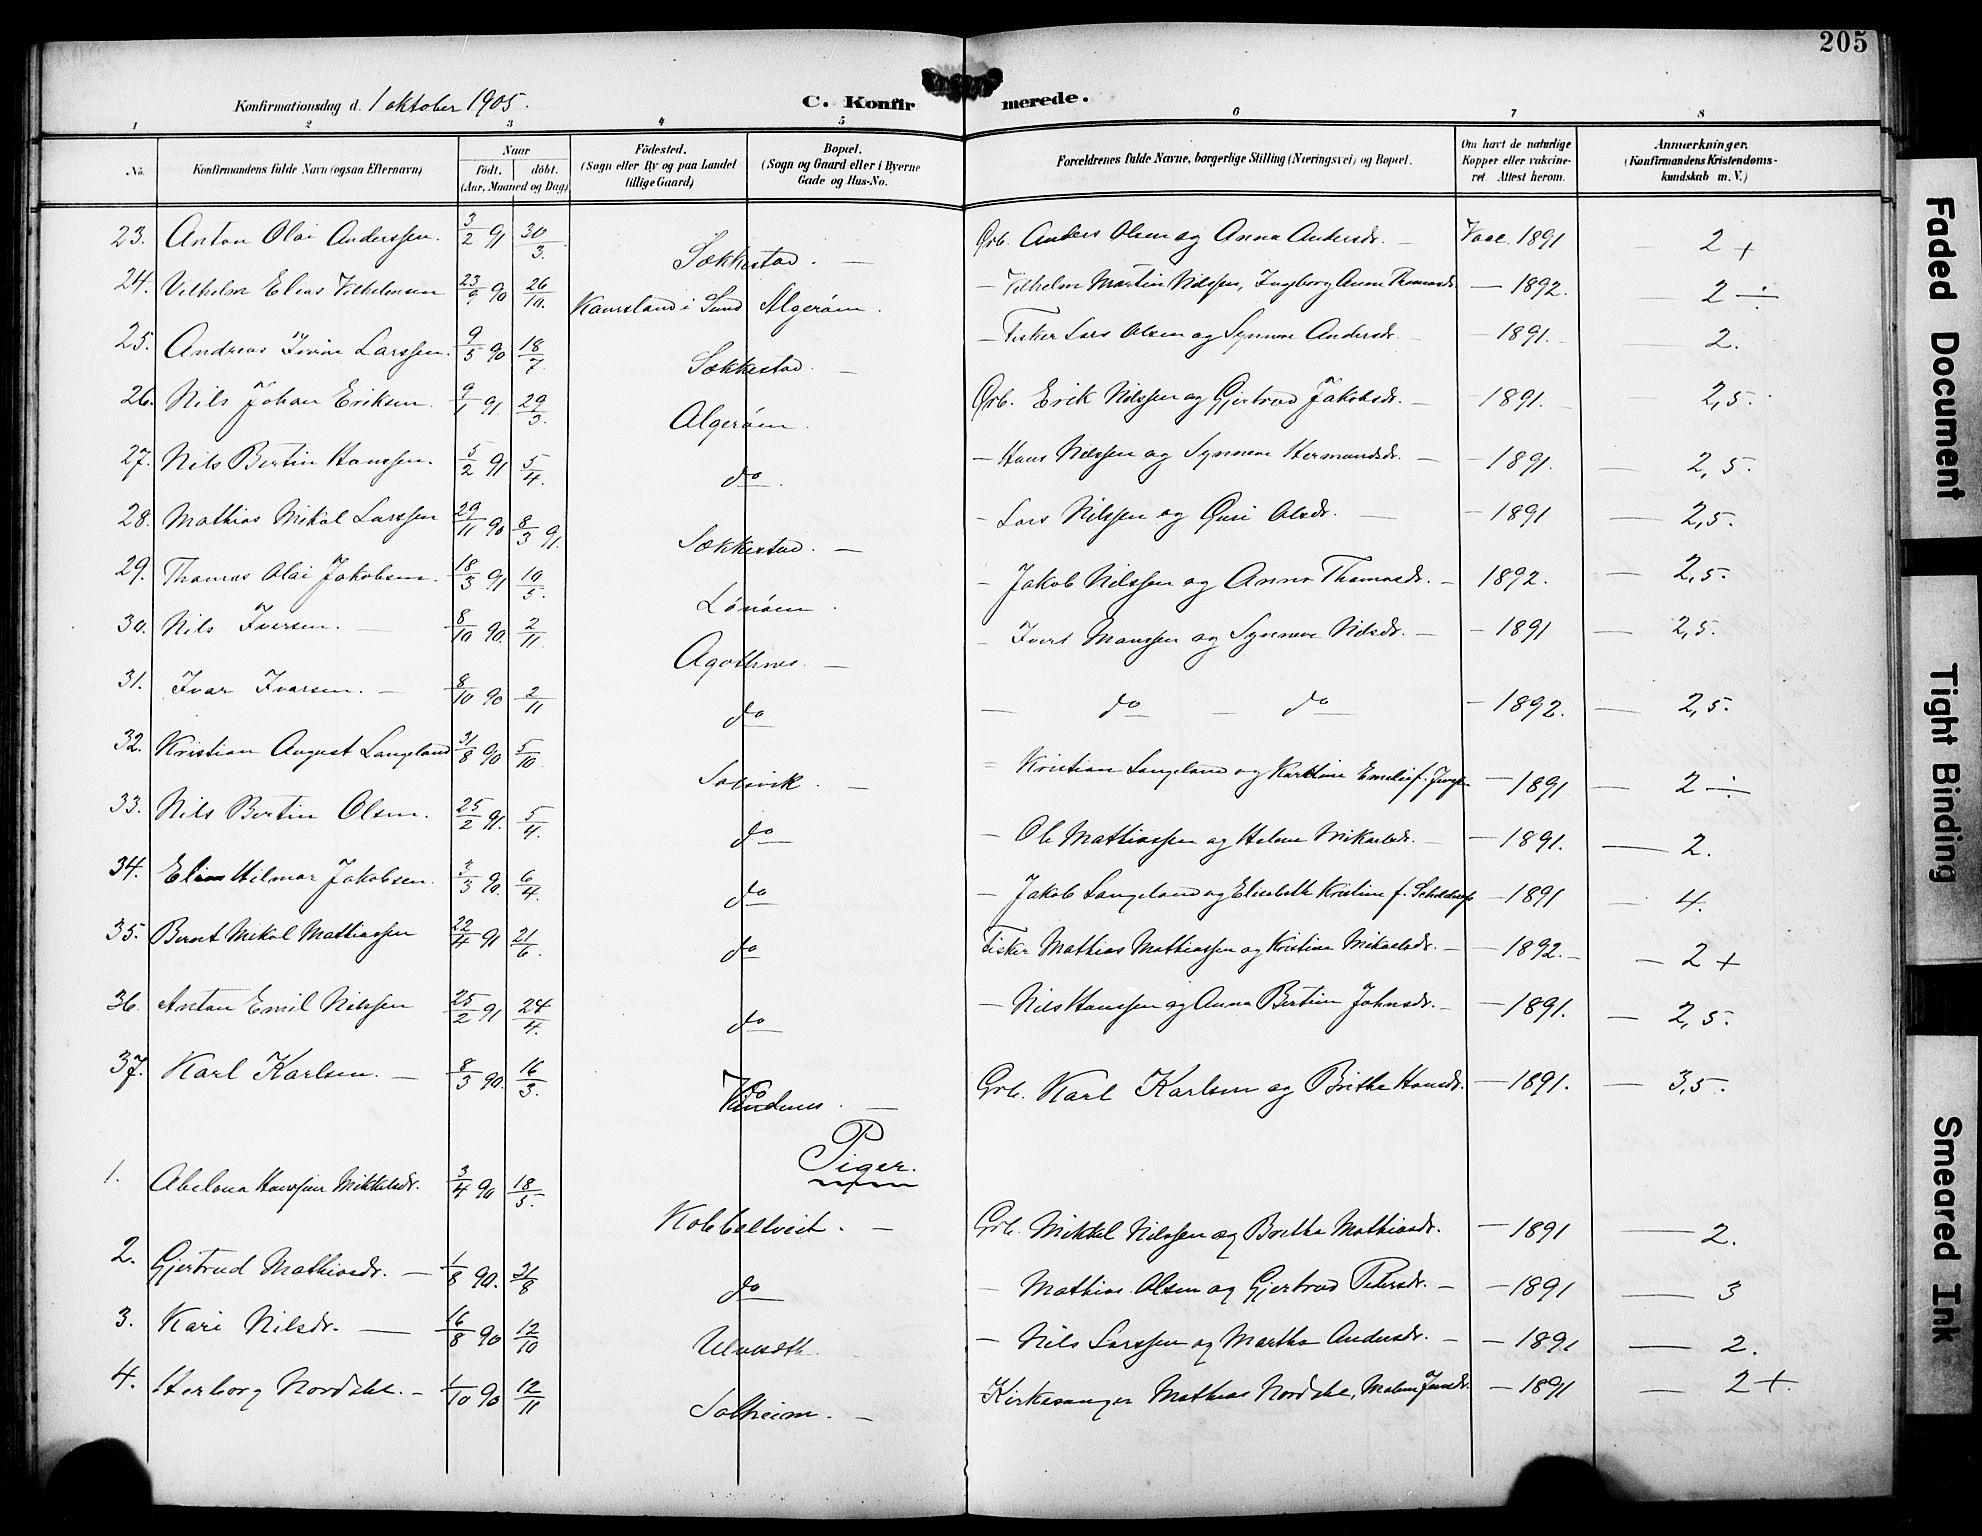 205
Konfirmationsdag d. 1 oktober 1905.
C. Konfirmerede.
1 2 3 4 5 6 7 8
No. Konfirmandens fulde Navn (ogsaa Efternavn) Naar födt. döbt. (Aar, Maaned og Dag) Födested. (Sogn eller By og paa Landet tillige Gaard) Bopæl. (Sogn og Gaard eller i Byerne Gade og Hus-No. Forældrenes fulde Navne, borgerlige Stilling (Næringsvei) og Bopæl. Om havt de naturlige Kopper eller vakcineret Attest herom. Anmærkninger. (Konfirmandens Kristendomskundskab m. V.)
23. Anton Olai Anderssen. 3/2 91 30/3. Sækkestad. — Grb. Anders Olsen og Anna Andersdr. — Vacc. 1891 — 2 +
24. Vilhelm Elias Vilhelmsen 23/9 90 26/10. i Sund Algerøen. — Vilhelm Martin Nilssen, Ingborg Anne Thomasdr — 1892. — 2 ÷
25. Andreas Larssen. 9/5 90 18/7. Sækkestad. — — Fisker Lars Olsen og Synneve Andersdr. — — 1891. — 2.
26. Nils Johan Eriksen. 9/1 91 29/3. Algerøen. Grb. Erik Nilssen og Gjertrud Jakobsdr. — 1891. — 2,5.
27. Nils Bertin Hanssen. 5/2 91 5/4. do. — Hans Nilssen og Synneve Hermundsdr. — — 1891. — 2,5.
28. Mathias Mikal Larssen 29/11 90 8/3 91. Sækkestad. — — Lars Nilssen og Guri Olsdr. — — 1891 — 2,5.
29. Thomas Olai Jakobsen. 18/3 91 10/5. Lønøen. — Jakob Nilssen og Anna Thomasdr. — 1892. — 2,5.
30. Nils Iversen. — 8/10 90. 2/11. Agothnes. — — Ivert Monssen og Synneve Nilsdr. — — 1891 — 2,5.
31. Ivar Ivarsen. — 8/10 90 2/11 do — do — do — 1892. — 2,5.
32. Kristian August Langeland 31/8 90 5/10. Solsvik. — — Kristian Langeland og Emelie f. — 1891 — 2 ÷
33. Nils Bertin Olsen. 25/2 91. 5/4. do — Ole Mathiassen og Helene Mikaelsdr. — — 1891. — 2.
34. Hilmar Jakobsen. /3 90. 6/4. do — Jakob Langeland og Elisabeth Kristine f. — 1891 — 4.
35. Bernt Mikal Mathiassen 22/4 91 21/6. do Fisker Mathias Mathiassen og Kristine Mikaelsdr. — — 1892. — 2 +
36. Anton Emil Nilssen 25/2 91 24/4. do — Nils Hanssen og Anna Bertine Johnsdr. — — 1891. — 2,5.
37. Karl Karlsen. — 8/3 90. 16/3. Vindenes. — Grb. Karl Karlsen og Brithe Hansdr. — 1891. — 3,5.
Piger.
1. Abelona Hanssine Mikkelsdr. 3/4 90 18/5. Kobbeltveit. — Grb. Mikkel Nilssen og Brithe Mathiasdr. — 1891 — 2.
2. Gjertrud Mathiasdr. — 1/8 90. 31/8 do — Mathias Olsen og Gjertrud Petersdr. — — 1891 — 3
3. Kari Nilsdr. — 16/8 90 12/10 — Nils Larssen og Martha Andersdr. — — 1891 — 2.
4. Herborg Nordahl. — 1/10 90 12/11 Solheim. — Kirkesanger Mathias Nordahl, — 1891 — 2 +.
Faded Document
Tight Binding
Smeared Ink